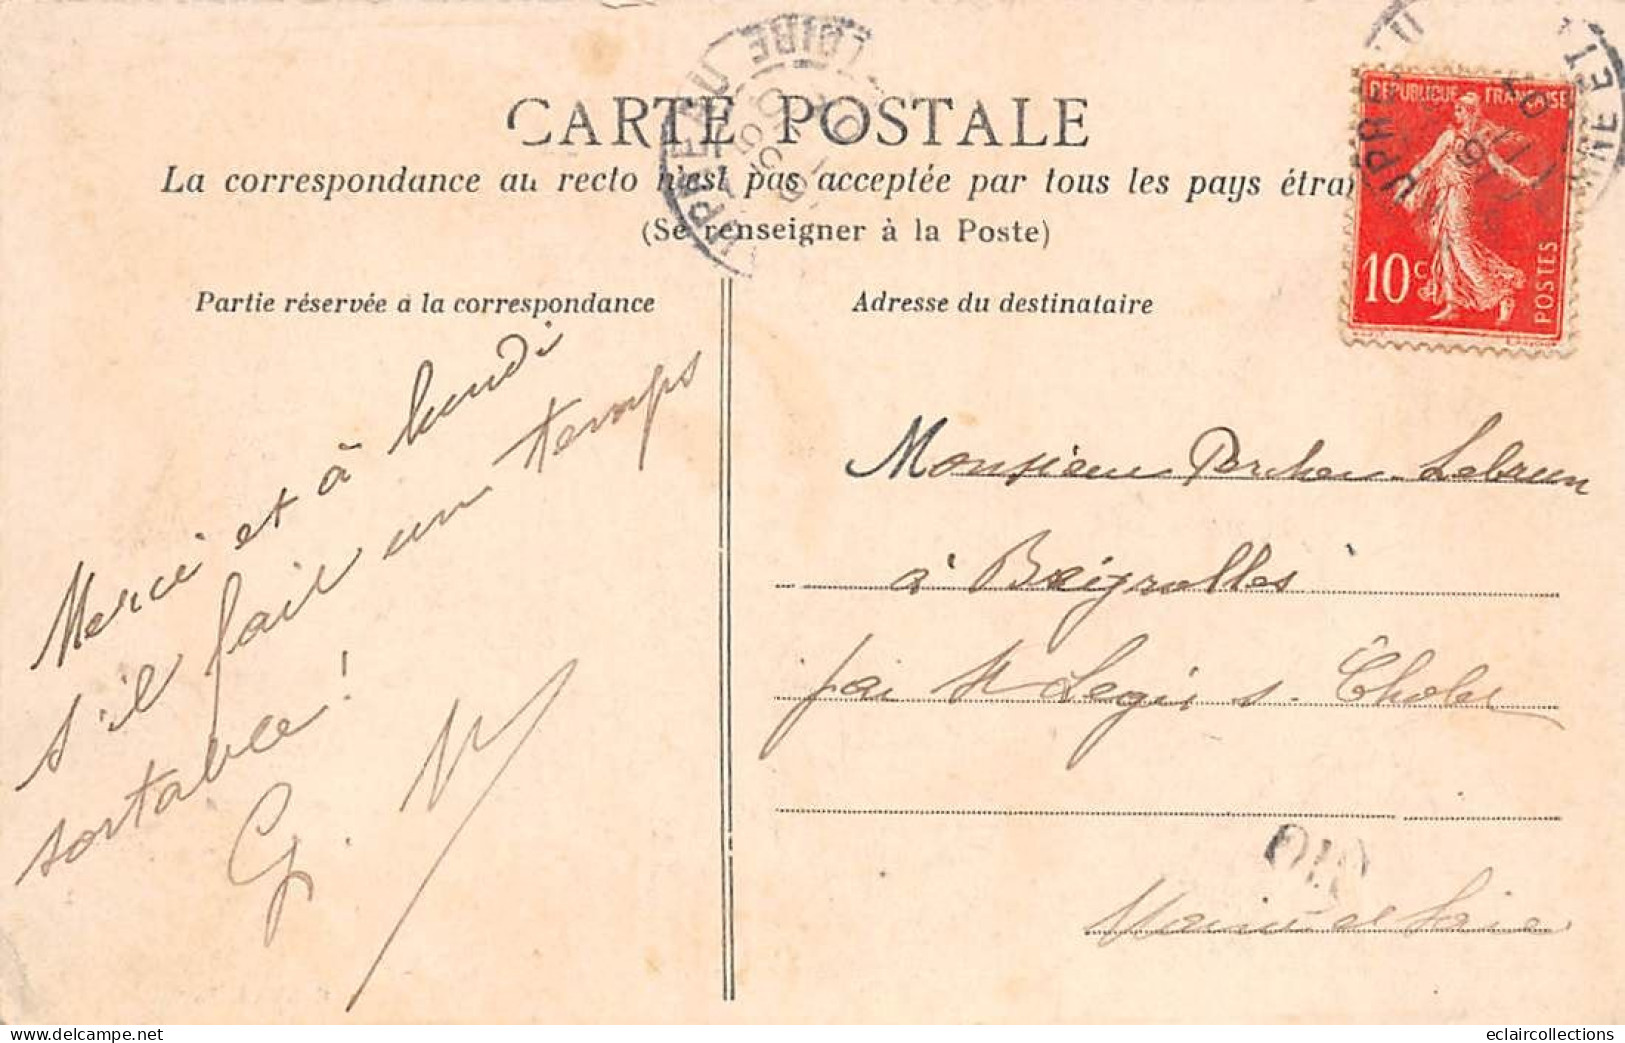 CARTE POSTALE
La correspondance au recto n'est pas acceptée par tous les pays étran
(Se renseigner à la Poste)
Partie réservée à la correspondance
Adresse du destinataire
RÉPUBLIQUE FRANÇAISE
10 c
POSTES
LOIRE
Merci et à lundi
s'il fait un temps
sortable!
G. M
Monsieur Percher-Lebrun
à Beigrolles
par St Legér s. Cholet
Maine et Loire
delcampe.net
eclaircollections